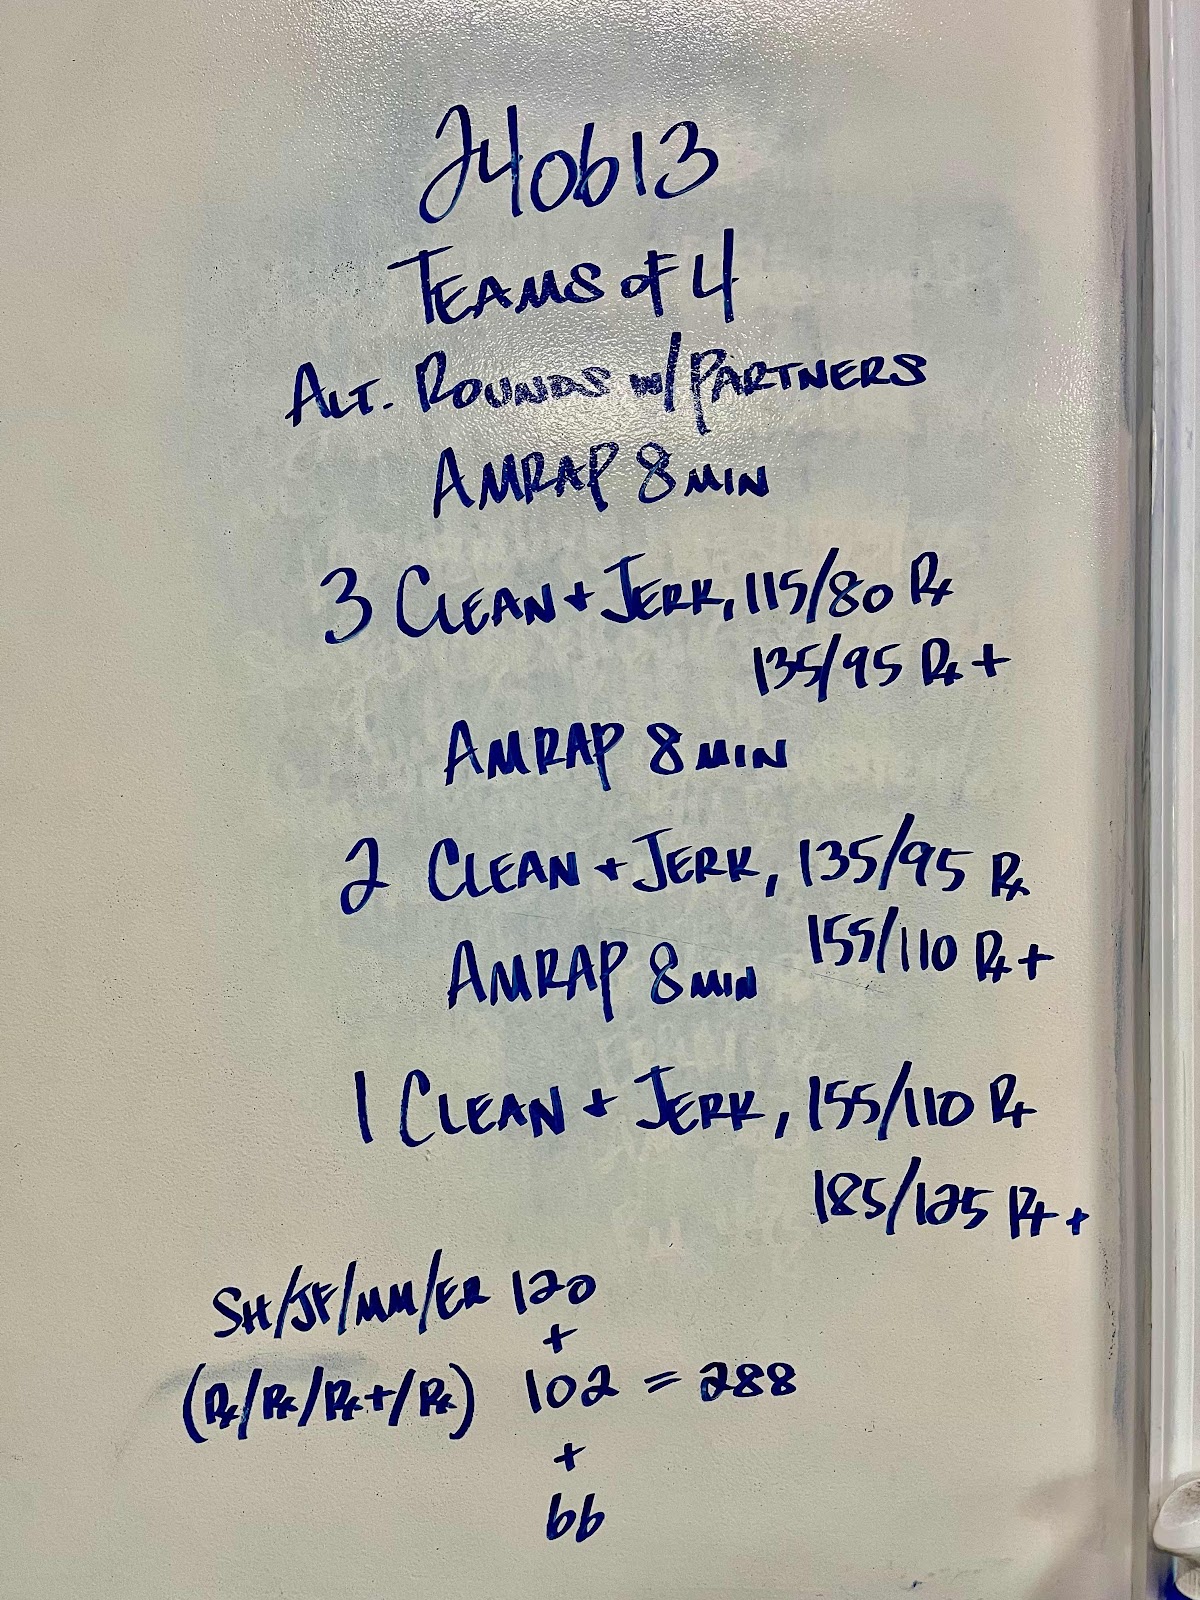 240613
TEAMS of 4
ALT. ROUNDS w/PARTNERS
AMRAP 8 MIN
3 CLEAN + JERK, 115/80 Rx
135/95 Rx +
AMRAP 8 MIN
2 CLEAN + JERK, 135/95 Rx
155/110 Rx +
AMRAP 8 MIN
1 CLEAN + JERK, 155/110 Rx
185/125 Rx +
SH/JF/MM/ER 120
+
(Rx/Rx/Rx+/Rx) 102 = 288
+
66